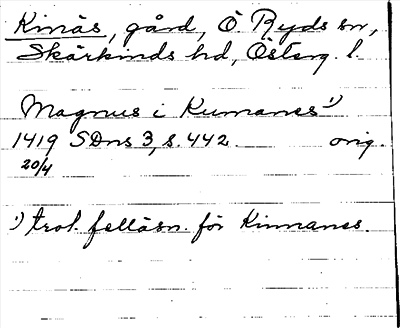 Kinäs, gård, Ö Ryds sn,
Skärkinds hd, Österg. l.
Magnus i Kumanes¹⁾
1419 SDns 3, s. 442. orig.
20/4
¹⁾ trol. felläsn. för Kinnanes.